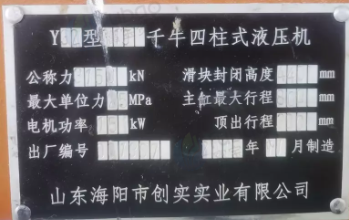 Y 型 千牛四柱式液压机
公称力 kN 滑块封闭高度 mm
最大单位力 MPa 主缸最大行程 mm
电机功率 kW 顶出行程 mm
出厂编号 年 月制造
山东海阳市创实实业有限公司